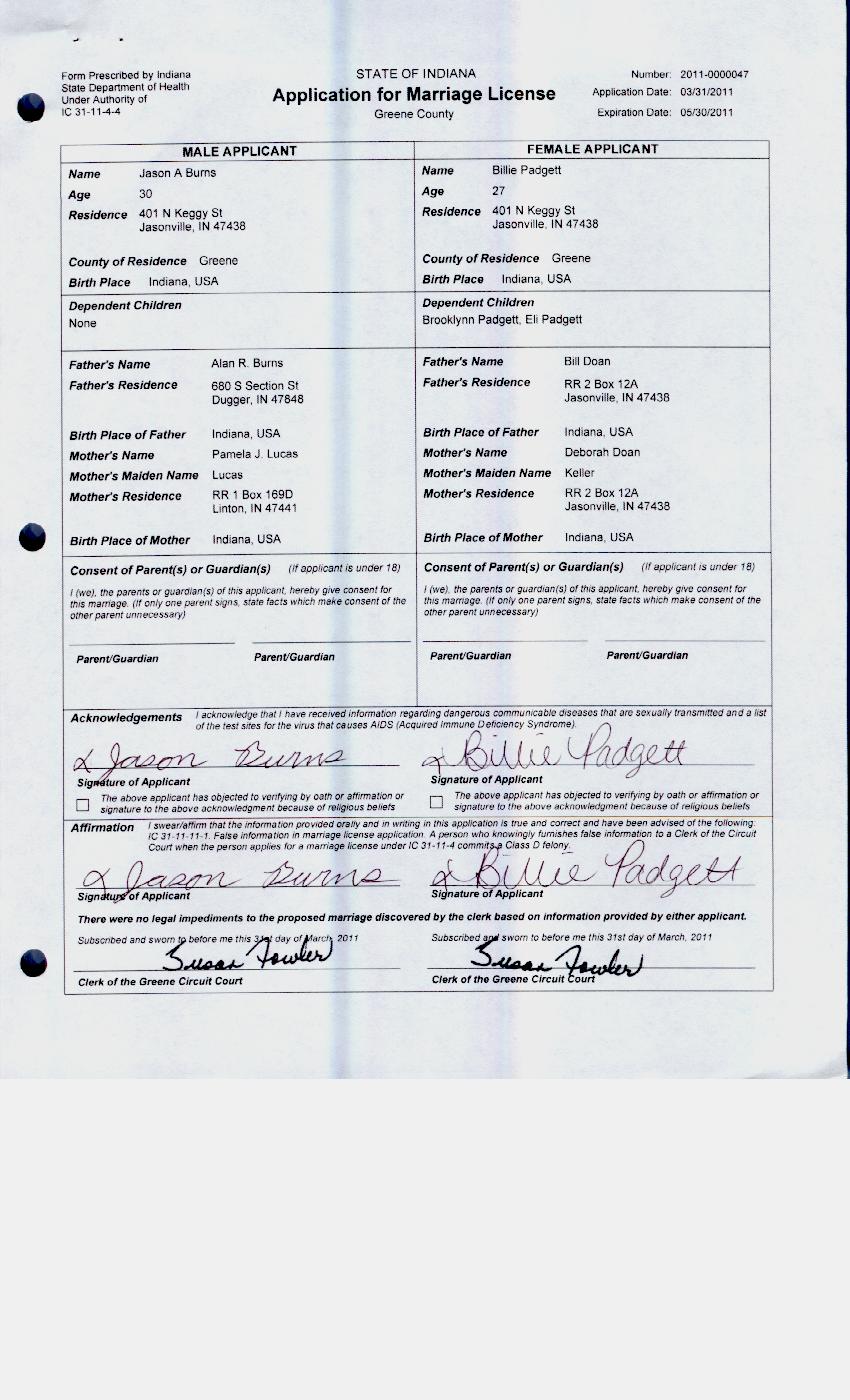 Form Prescribed by Indiana
State Department of Health
Under Authority of
IC 31-11-4-4
STATE OF INDIANA
Application for Marriage License
Greene County
Number: 2011-0000047
Application Date: 03/31/2011
Expiration Date: 05/30/2011
MALE APPLICANT
Name Jason A Burns
Age 30
Residence 401 N Keggy St
Jasonville, IN 47438
County of Residence Greene
Birth Place Indiana, USA
Dependent Children
None
Father's Name Alan R. Burns
Father's Residence 680 S Section St
Dugger, IN 47848
Birth Place of Father Indiana, USA
Mother's Name Pamela J. Lucas
Mother's Maiden Name Lucas
Mother's Residence RR 1 Box 169D
Linton, IN 47441
Birth Place of Mother Indiana, USA
Consent of Parent(s) or Guardian(s) (if applicant is under 18)
I (we), the parents or guardian(s) of this applicant, hereby give consent for
this marriage. (If only one parent signs, state facts which make consent of the
other parent unnecessary)
Parent/Guardian Parent/Guardian
FEMALE APPLICANT
Name Billie Padgett
Age 27
Residence 401 N Keggy St
Jasonville, IN 47438
County of Residence Greene
Birth Place Indiana, USA
Dependent Children
Brooklynn Padgett, Eli Padgett
Father's Name Bill Doan
Father's Residence RR 2 Box 12A
Jasonville, IN 47438
Birth Place of Father Indiana, USA
Mother's Name Deborah Doan
Mother's Maiden Name Keller
Mother's Residence RR 2 Box 12A
Jasonville, IN 47438
Birth Place of Mother Indiana, USA
Consent of Parent(s) or Guardian(s) (if applicant is under 18)
I (we), the parents or guardian(s) of this applicant, hereby give consent for
this marriage. (If only one parent signs, state facts which make consent of the
other parent unnecessary)
Parent/Guardian Parent/Guardian
Acknowledgements I acknowledge that I have received information regarding dangerous communicable diseases that are sexually transmitted and a list
of the test sites for the virus that causes AIDS (Acquired Immune Deficiency Syndrome).
x Jason Burns x Billie Padgett
Signature of Applicant Signature of Applicant
The above applicant has objected to verifying by oath or affirmation or
signature to the above acknowledgment because of religious beliefs
The above applicant has objected to verifying by oath or affirmation or
signature to the above acknowledgment because of religious beliefs
Affirmation I swear/affirm that the information provided orally and in writing in this application is true and correct and have been advised of the following:
IC 31-11-11-1. False information in marriage license application. A person who knowingly furnishes false information to a Clerk of the Circuit
Court when the person applies for a marriage license under IC 31-11-4 commits a Class D felony.
x Jason Burns x Billie Padgett
Signature of Applicant Signature of Applicant
There were no legal impediments to the proposed marriage discovered by the clerk based on information provided by either applicant.
Subscribed and sworn to before me this 31st day of March, 2011 Subscribed and sworn to before me this 31st day of March, 2011
Susan Fowler Susan Fowler
Clerk of the Greene Circuit Court Clerk of the Greene Circuit Court